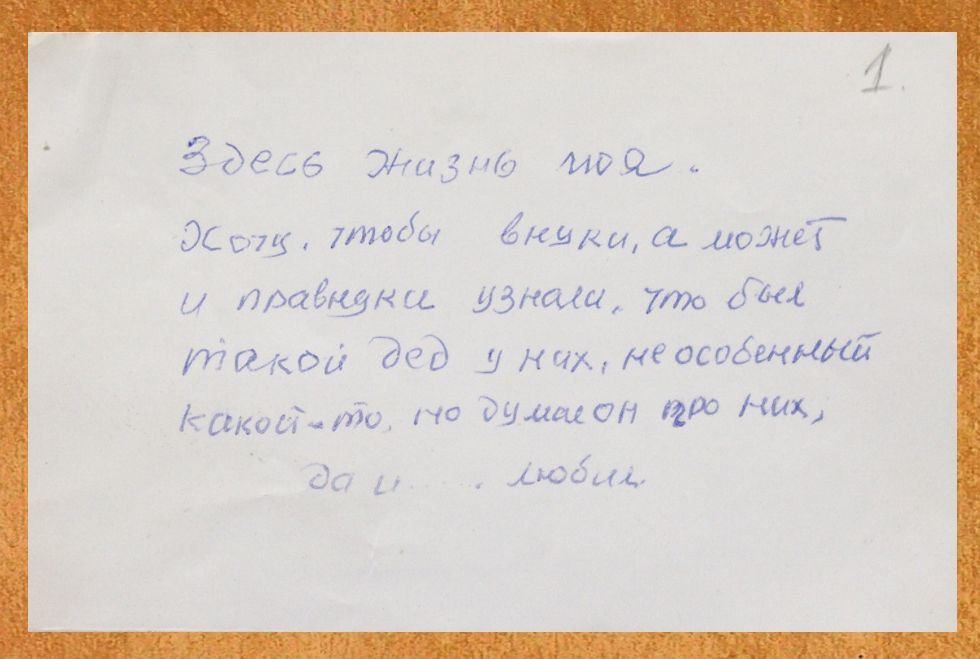 1.
Здесь жизнь моя.
Хочу, чтобы внуки, а может
и правнуки узнали, что был
такой дед у них, не особенный
какой-то, но думал он про них,
да и ..... любил.